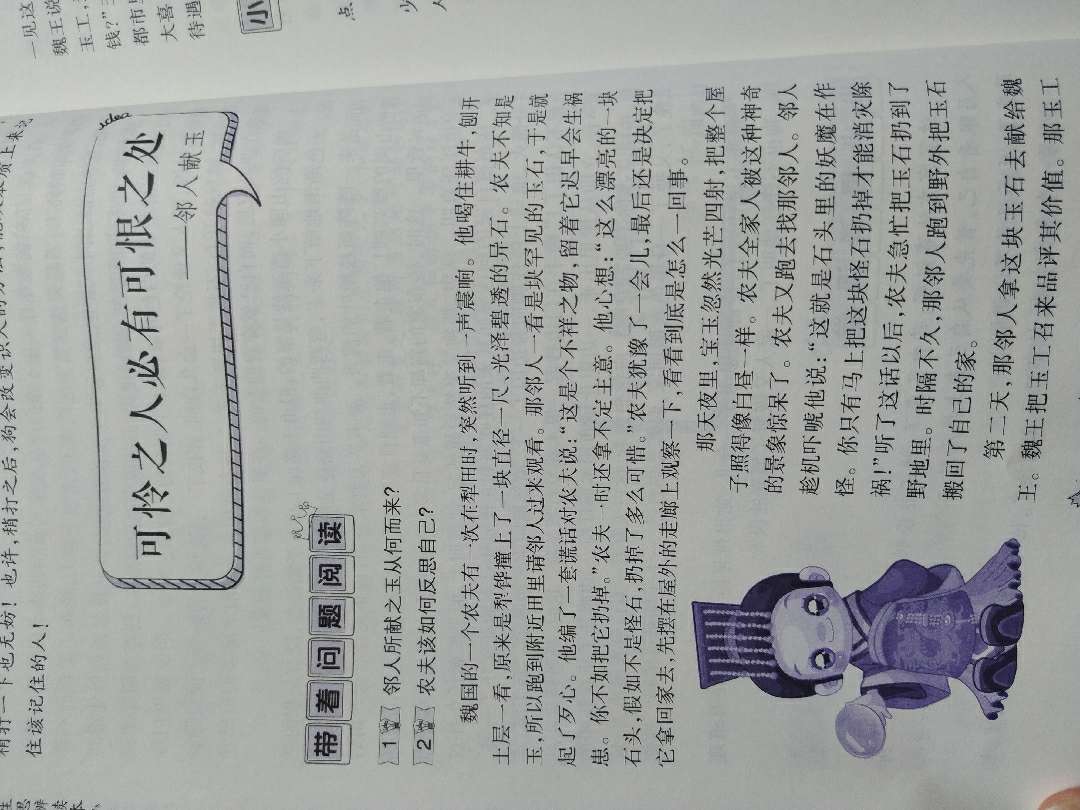 一见这
魏王说
玉工,
钱?”
都市
大喜
待遇
小
点
少
人
稍打一下也无妨!也许,稍打之后,狗会改变
住该记住的人!
idea
可怜之人必有可恨之处
——邻人献玉
带着问题阅读
1 邻人所献之玉从何而来?
2 农夫该如何反思自己?
魏国的一个农夫有一次在犁田时,突然听到一声震响。他喝住耕牛,刨开
土层一看,原来是犁铧撞上了一块直径一尺、光泽碧透的异石。农夫不知是
玉,所以跑到附近田里请邻人过来观看。那邻人一看是块罕见的玉石,于是就
起了歹心。他编了一套谎话对农夫说:“这是个不祥之物,留着它迟早会生祸
患。你不如把它扔掉。”农夫一时还拿不定主意。他心想:“这么漂亮的一块
石头,假如不是怪石,扔掉了多么可惜。”农夫犹豫了一会儿,最后还是决定把
它拿回家去,先摆在屋外的走廊上观察一下,看看到底是怎么一回事。
那天夜里,宝玉忽然光芒四射,把整个屋
子照得像白昼一样。农夫全家人被这种神奇
的景象惊呆了。农夫又跑去找那邻人。邻人
趁机吓唬他说:“这就是石头里的妖魔在作
怪。你只有马上把这块怪石扔掉才能消灾除
祸!”听了这话以后,农夫急忙把玉石扔到了
野地里。时隔不久,那邻人跑到野外把玉石
搬回了自己的家。
第二天,那邻人拿这块玉石去献给魏
王。魏王把玉工召来品评其价值。那玉工